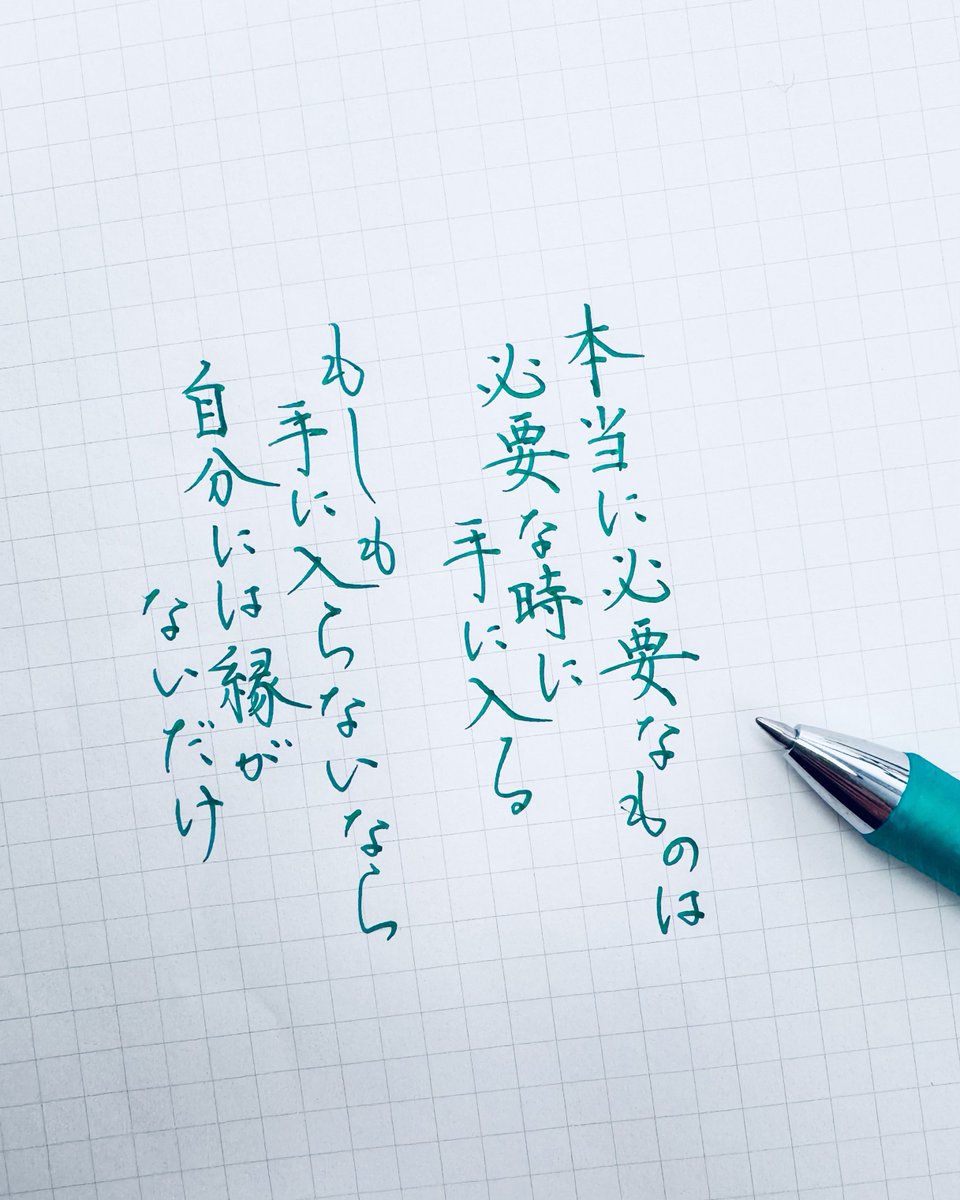 本当に必要なものは
必要な時に
手に入る
もしも
手に入らないなら
自分には縁が
ないだけ